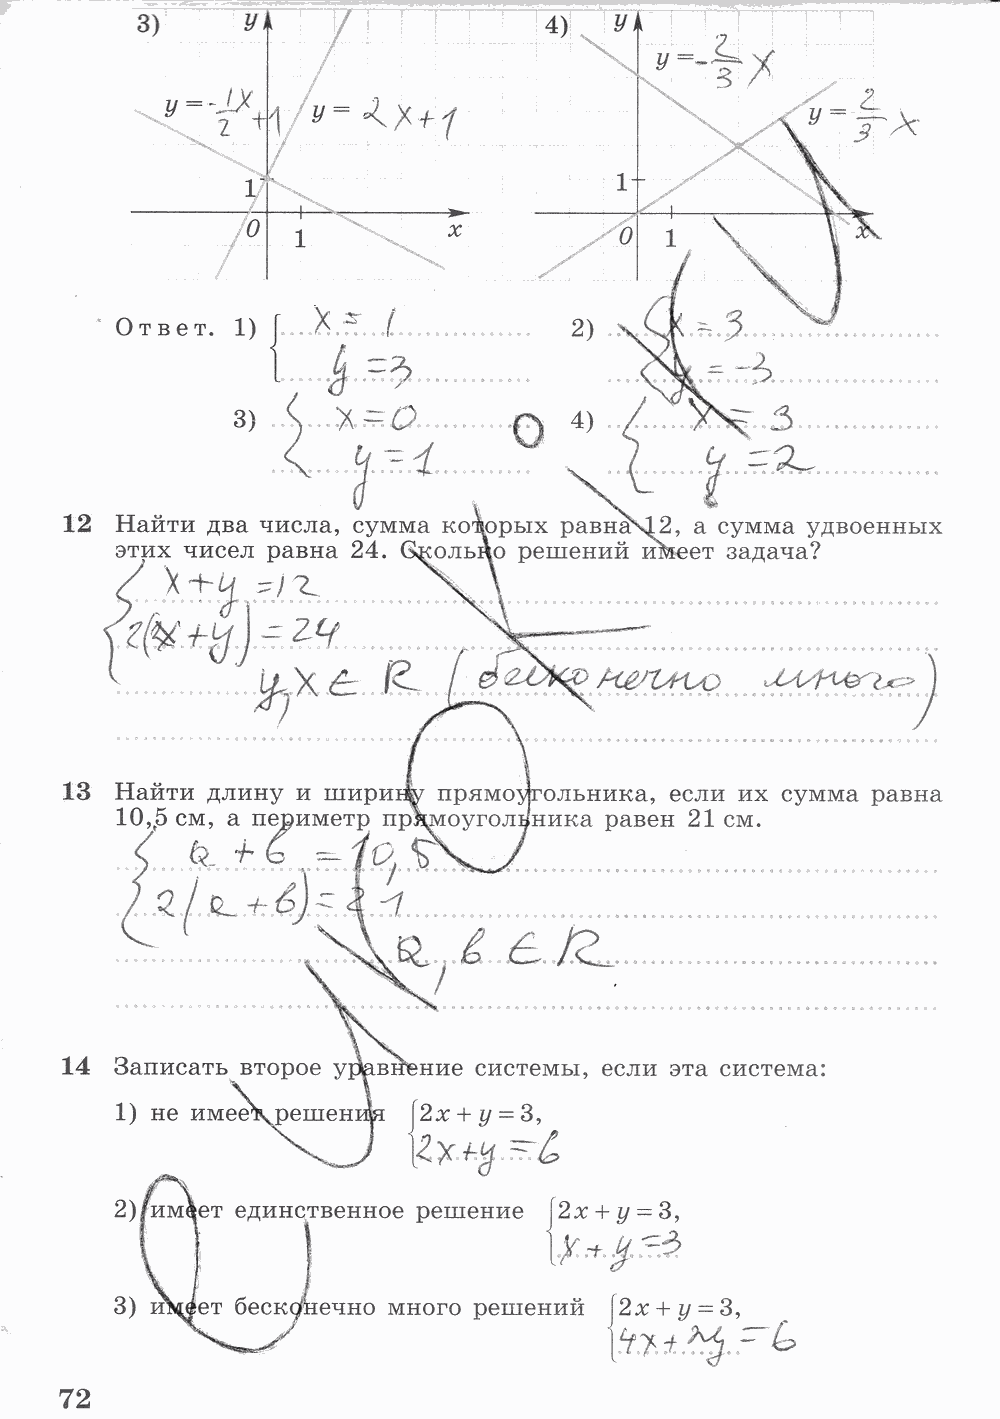 3) y 4) y
y = -1/2 x + 1 y = 2x+1 y = -2/3 x y = 2/3 x
1 1
0 1 x 0 1 x
Ответ. 1) x = 1 2) x = 3
y = 3 y = -3
3) x = 0 4) x = 3
y = 1 y = 2
12 Найти два числа, сумма которых равна 12, а сумма удвоенных
этих чисел равна 24. Сколько решений имеет задача?
x + y = 12
2(x + y) = 24
y, x ∈ R (бесконечно много)
13 Найти длину и ширину прямоугольника, если их сумма равна
10,5 см, а периметр прямоугольника равен 21 см.
a + b = 10,5
2(a + b) = 21
a, b ∈ R
14 Записать второе уравнение системы, если эта система:
1) не имеет решения 2x + y = 3,
2x + y = 6
2) имеет единственное решение 2x + y = 3,
x + y = 3
3) имеет бесконечно много решений 2x + y = 3,
4x + 2y = 6
72